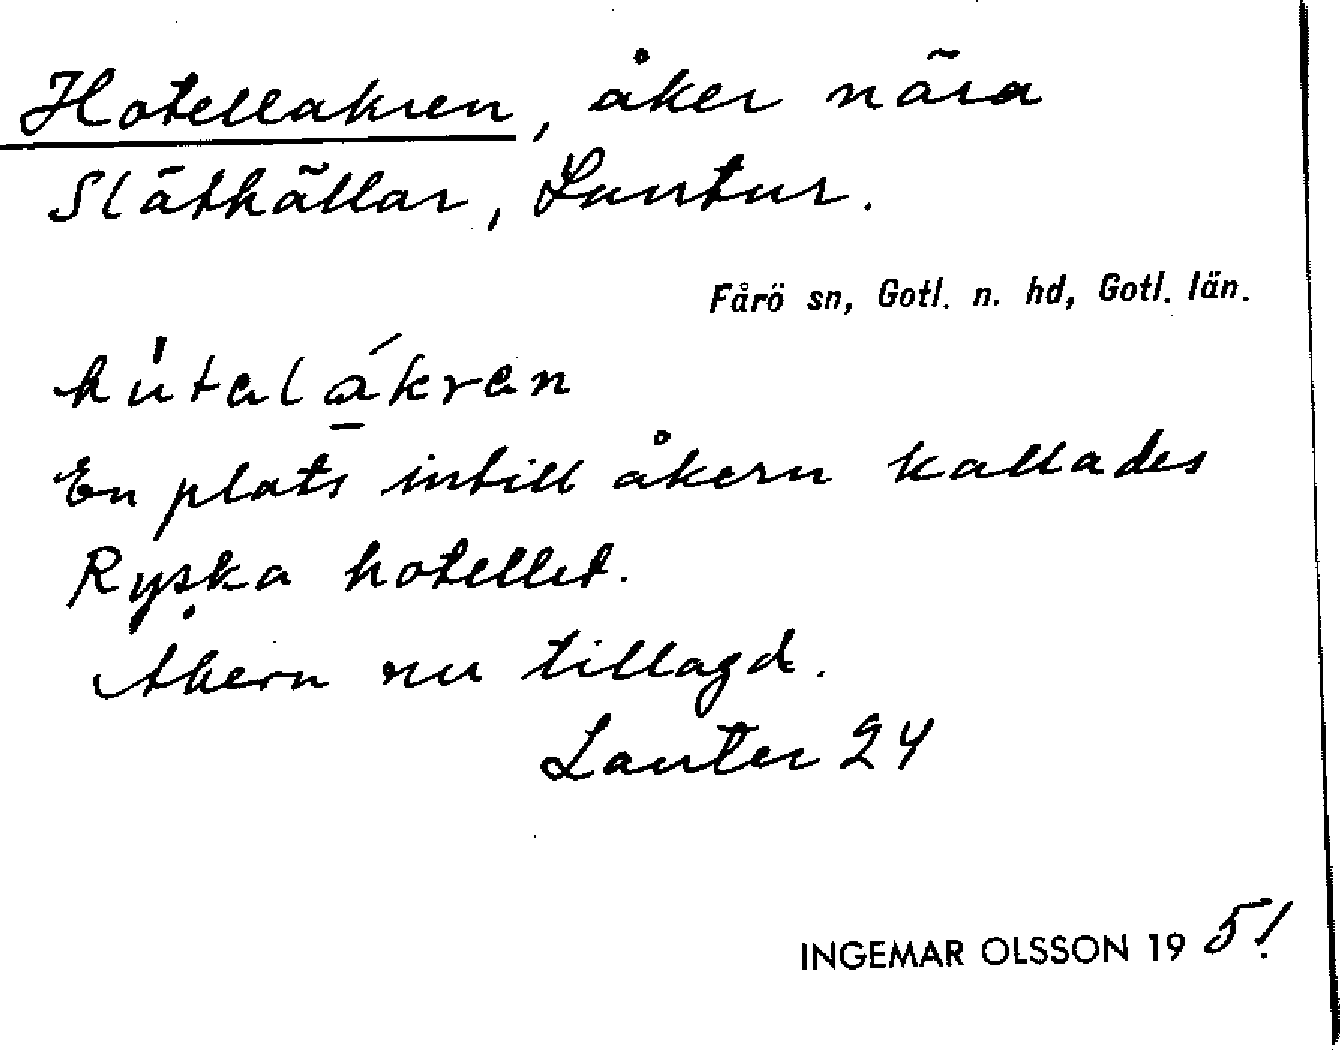 Hotellakren, åker nära
Släthällar, Lautur.
Fårö sn, Gotl. n. hd, Gotl. län.
hútalákran
En plats intill åkern kallades
Ryska hotellet.
Åkern nu tillagd.
Lauter 24
INGEMAR OLSSON 1951